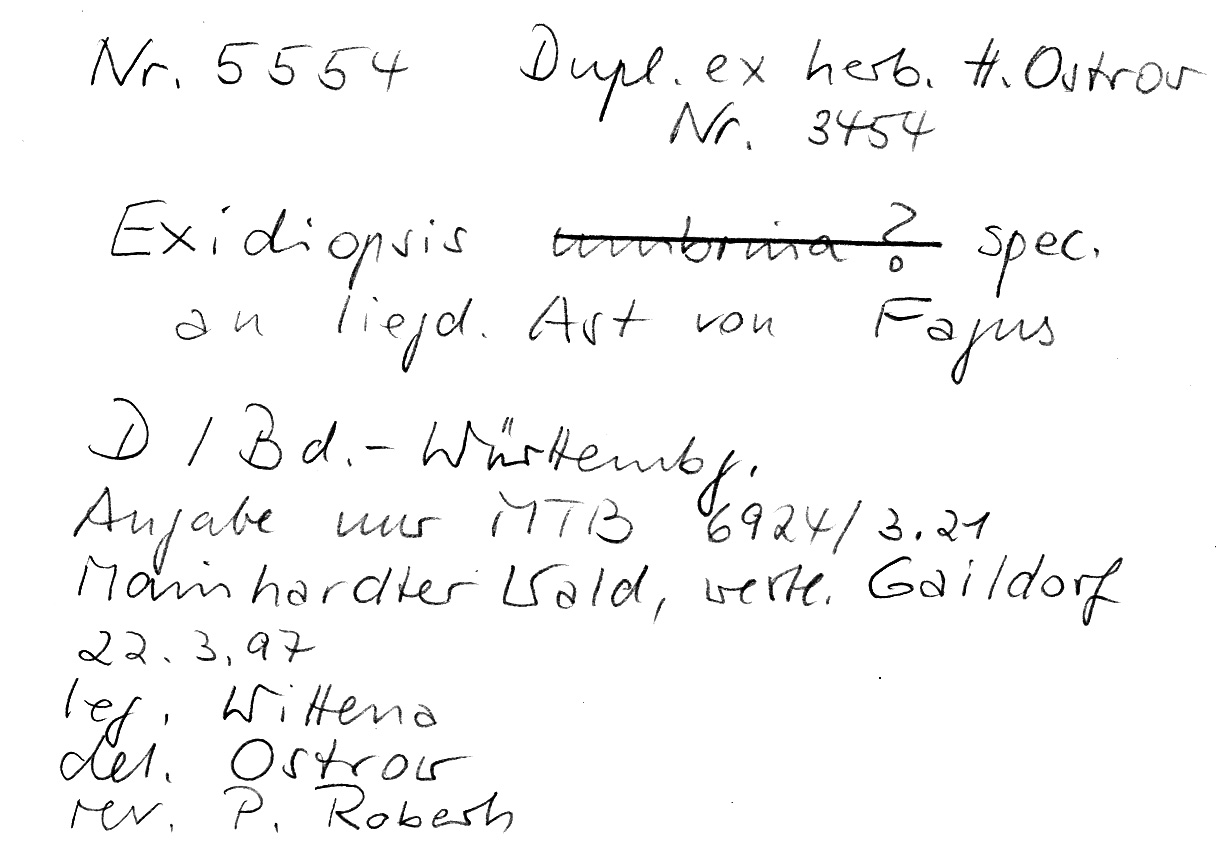 Nr. 5554 Dupl. ex herb. H. Ostrow
Nr. 3454
Exidiopsis umbrina ? spec.
an liegd. Ast von Fagus
D / Bd.-Württembg.
Angabe nur MTB 6924/3.21
Mainhardter Wald, westl. Gaildorf
22.3.97
leg. Wittena
det. Ostrow
rev. P. Roberts